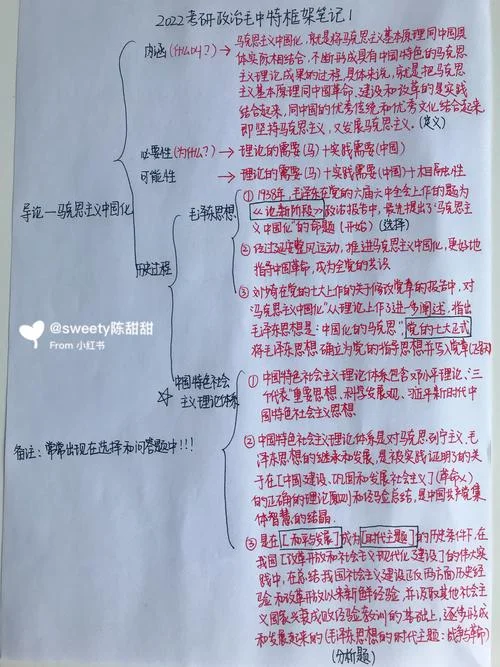 2022考研政治毛中特框架笔记1
内涵(什么叫?)→马克思主义中国化,就是将马克思主义基本原理同中国具
体实际相结合,不断形成具有中国特色的马克思
主义理论成果的过程,具体来说,就是把马克思
主义基本原理同中国革命、建设和改革的实践
结合起来,同中国的优秀传统和优秀文化结合起来,
即坚持马克思主义,又发展马克思主义。(定义)
必要性(为什么?)→理论的需要(马)+实践需要(中国)
可能性→理论的需要(马)+实践需要(中国)+相融性
导论—马克思主义中国化
历史过程
毛泽东思想
①1938年,毛泽东在党的六届六中全会上作的题为
《论新阶段》政治报告中,最先提出了"马克思主
义中国化"的命题(开始)(选择)
②经过延安整风运动,推进马克思主义中国化,更好地
指导中国革命,成为全党的共识
③刘少奇在党的七大上作的关于修改党章的报告中,对
"马克思主义中国化"从理论上作了进一步阐述,指出
毛泽东思想是:中国化的马克思",党的七大正式
将毛泽东思想确立为党的指导思想并写入党章
@sweety陈甜甜
From 小红书
☆中国特色社会
主义理论体系
①中国特色社会主义理论体系包含邓小平理论、"三
个代表"重要思想、科学发展观、习近平新时代中
国特色社会主义思想
备注:常常出现在选择和问答题中!!!
②中国特色社会主义理论体系是对马克思列宁主义、毛
泽东思想的继承和发展,是被实践证明了的关
于在[中国建设、巩固和发展社会主义](革命×)
的正确的理论原则和经验总结,是中国共产党集
体智慧的结晶.
③是在[和平与发展]成为[时代主题]的历史条件下,在
我国[改革开放和社会主义现代化建设]的伟大实
践中,在总结我国社会主义建设正反两方面历史经
验和改革开放以来新鲜经验,并汲取其他社会主义
国家兴衰成败经验教训的基础上,逐步形成
和发展起来的(毛泽东思想的时代主题:战争与革命)
(分析题)